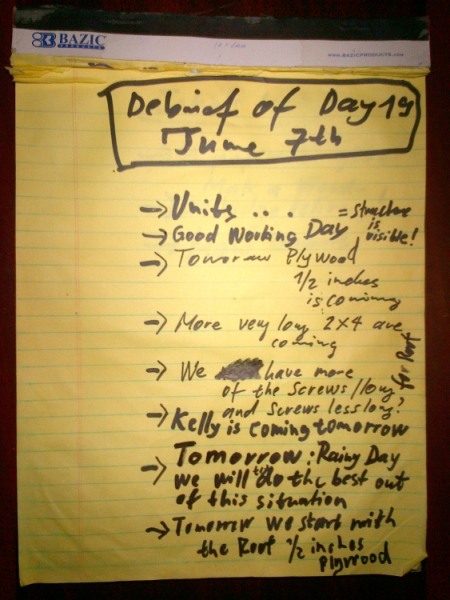 BAZIC
PRODUCTS
WWW.BAZICPRODUCTS.COM
Debrief of Day 19
June 7th
→ Units . . .
= Structure is visible!
→ Good Working Day
→ Tomorrow Plywood
1/2 inches
is coming
→ More very long 2x4 are
coming for Roof
→ We have more
of the screws/long
and screws less long?
→ Kelly is coming tomorrow
→ Tomorrow: Rainy Day
we will try do the best out
of this situation
→ Tomorrow we start with
the Roof 1/2 inches
plywood